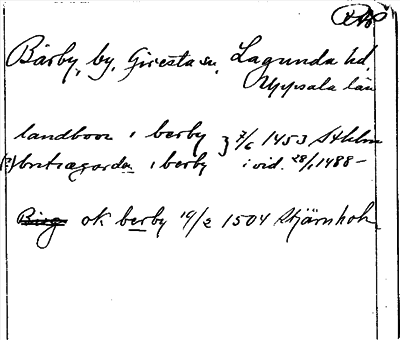 Bärby, by, Giresta sn, Lagunda hd,
Uppsala län
landboor i berby } 7/6 1453 Sthlm
(?) botregarda i berby i vid. 28/1 1488 –
Birg ok berby 19/2 1504 Stjärnholm